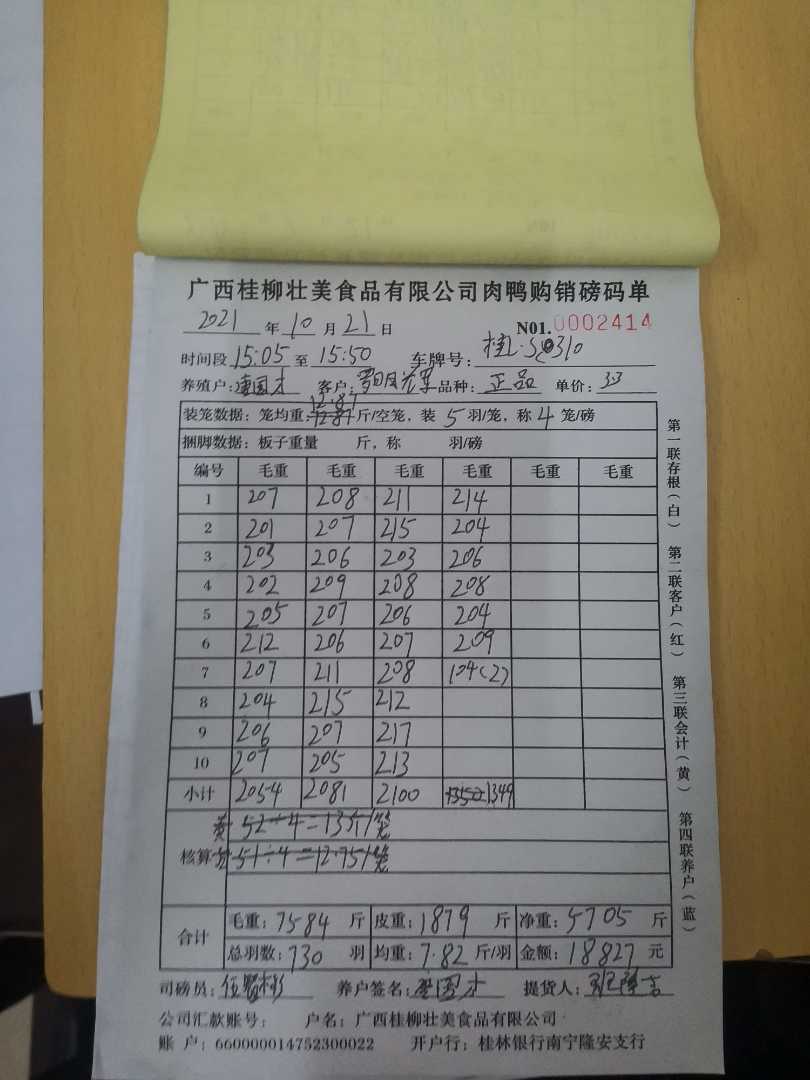 广西桂柳壮美食品有限公司肉鸭购销磅码单
2021 年 10 月 21 日 N01.0002414
时间段 15:05 至 15:50 车牌号: 桂
养殖户: 国才 客户: 品种: 正品 单价: 3.3
装笼数据: 笼均重: 12.87 斤/空笼, 装 5 羽/笼, 称 4 笼/磅
捆脚数据: 板子重量 斤, 称 羽/磅
编号 毛重 毛重 毛重 毛重 毛重 毛重
1 207 208 211 214
2 201 207 215 204
3 203 206 203 206
4 202 209 208 208
5 205 207 206 204
6 212 206 207 209
7 207 211 208 104(2)
8 204 215 212
9 206 207 217
10 207 205 213
小计 2054 2081 2100 1349
黄 52÷4=13斤/笼
核算 51÷4=12.75/笼
合计 毛重: 7584 斤 皮重: 1879 斤 净重: 5705 斤
总羽数: 730 羽 均重: 7.82 斤/羽 金额: 18827 元
司磅员: 伍 养户签名: 国才 提货人:
公司汇款账号: 户名: 广西桂柳壮美食品有限公司
账 户: 660000014752300022 开户行: 桂林银行南宁隆安支行
第一联存根(白) 第二联客户(红) 第三联会计(黄) 第四联养户(蓝)